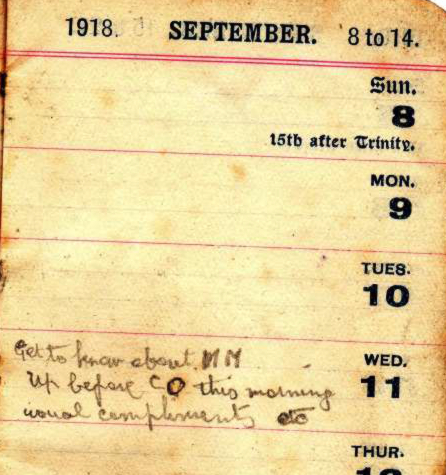 1918. SEPTEMBER. 8 to 14.
Sun.
8
15th after Trinity.
MON.
9
TUES.
10
WED.
11
Get to know about MM
Up before CO this morning
usual compliments etc
THUR.
12